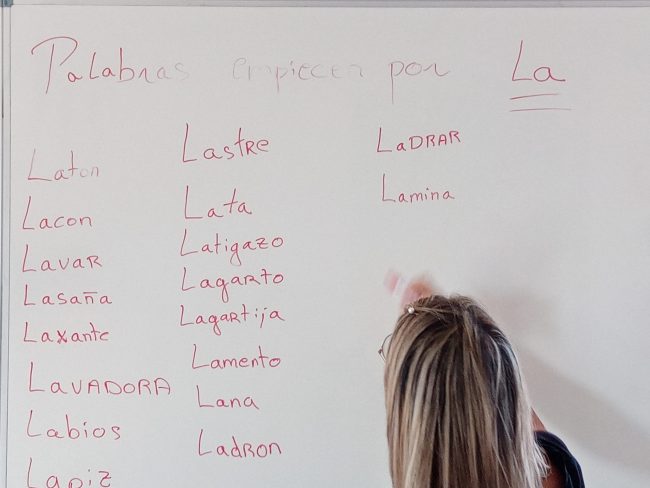 Palabras empiecen por La
Laton
Lacon
Lavar
Lasaña
Laxante
LAVADORA
Labios
Lapiz
Lastre
Lata
Latigazo
Lagarto
Lagartija
Lamento
Lana
Ladron
LaDRAR
Lamina